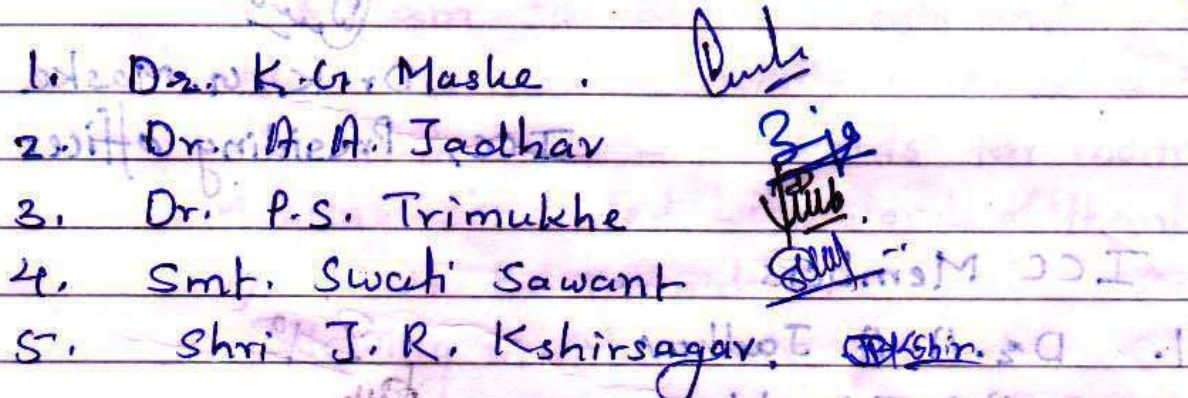 1. Dr. K.G. Maske.
2. Dr. A. A. Jadhav
3. Dr. P.S. Trimukhe
4. Smt. Swati Sawant
5. Shri J. R. Kshirsagar. JRKshir.